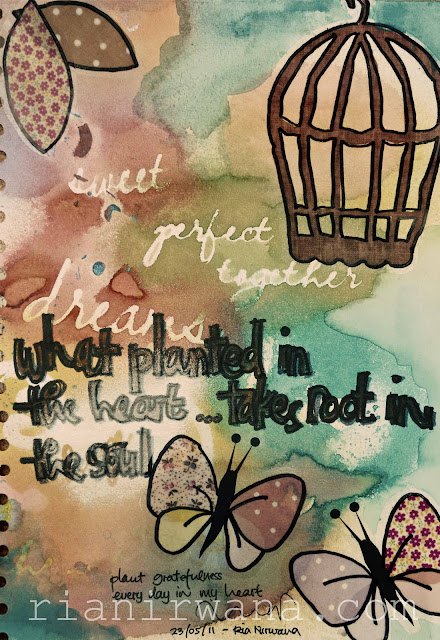 sweet
perfect
together
dreams
what planted in
the heart ... takes root in
the soul
plant gratefulness
every day in my heart
rianirwana.com
23/05/11 - Ria Nirwana